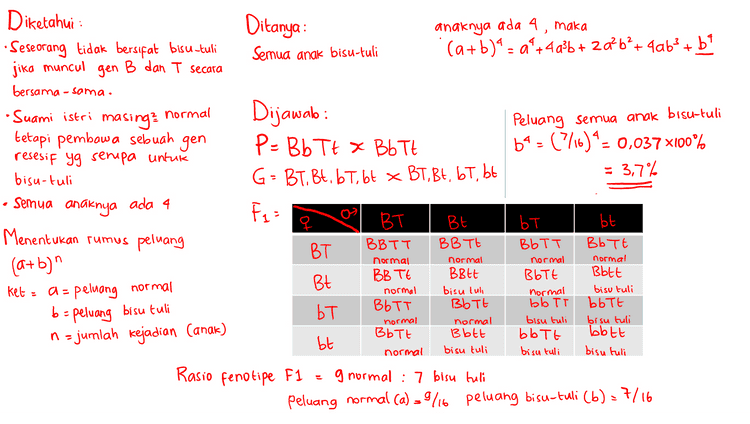 Diketahui:
• Seseorang tidak bersifat bisu-tuli
jika muncul gen B dan T secara
bersama-sama.
• Suami istri masing² normal
tetapi pembawa sebuah gen
resesif yg serupa untuk
bisu-tuli
• Semua anaknya ada 4
Menentukan rumus peluang
(a+b)ⁿ
ket = a = peluang normal
b = peluang bisu tuli
n = jumlah kejadian (anak)
Ditanya:
Semua anak bisu-tuli
anaknya ada 4, maka
(a+b)⁴ = a⁴ + 4a³b + 2a²b² + 4ab³ + b⁴
Dijawab:
P = BbTt × BbTt
G = BT, Bt, bT, bt × BT, Bt, bT, bt
Peluang semua anak bisu-tuli
b⁴ = (7/16)⁴ = 0,037 × 100%
= 3,7%
F₁ =
♀ ♂ BT Bt bT bt
BT BBTT BBTt BbTT BbTt
normal normal normal normal
Bt BBTt BBtt BbTt Bbtt
normal bisu tuli normal bisu tuli
bT BbTT BbTt bbTT bbTt
normal normal bisu tuli bisu tuli
bt BbTt Bbtt bbTt bbtt
normal bisu tuli bisu tuli bisu tuli
Rasio fenotipe F1 = 9 normal : 7 bisu tuli
peluang normal (a) = 9/16 peluang bisu-tuli (b) = 7/16